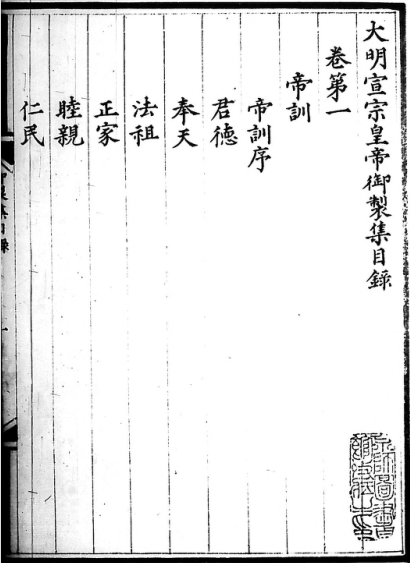 大明宣宗皇帝御製集目錄
卷第一
帝訓
帝訓序
君德
奉天
法祖
正家
睦親
仁民